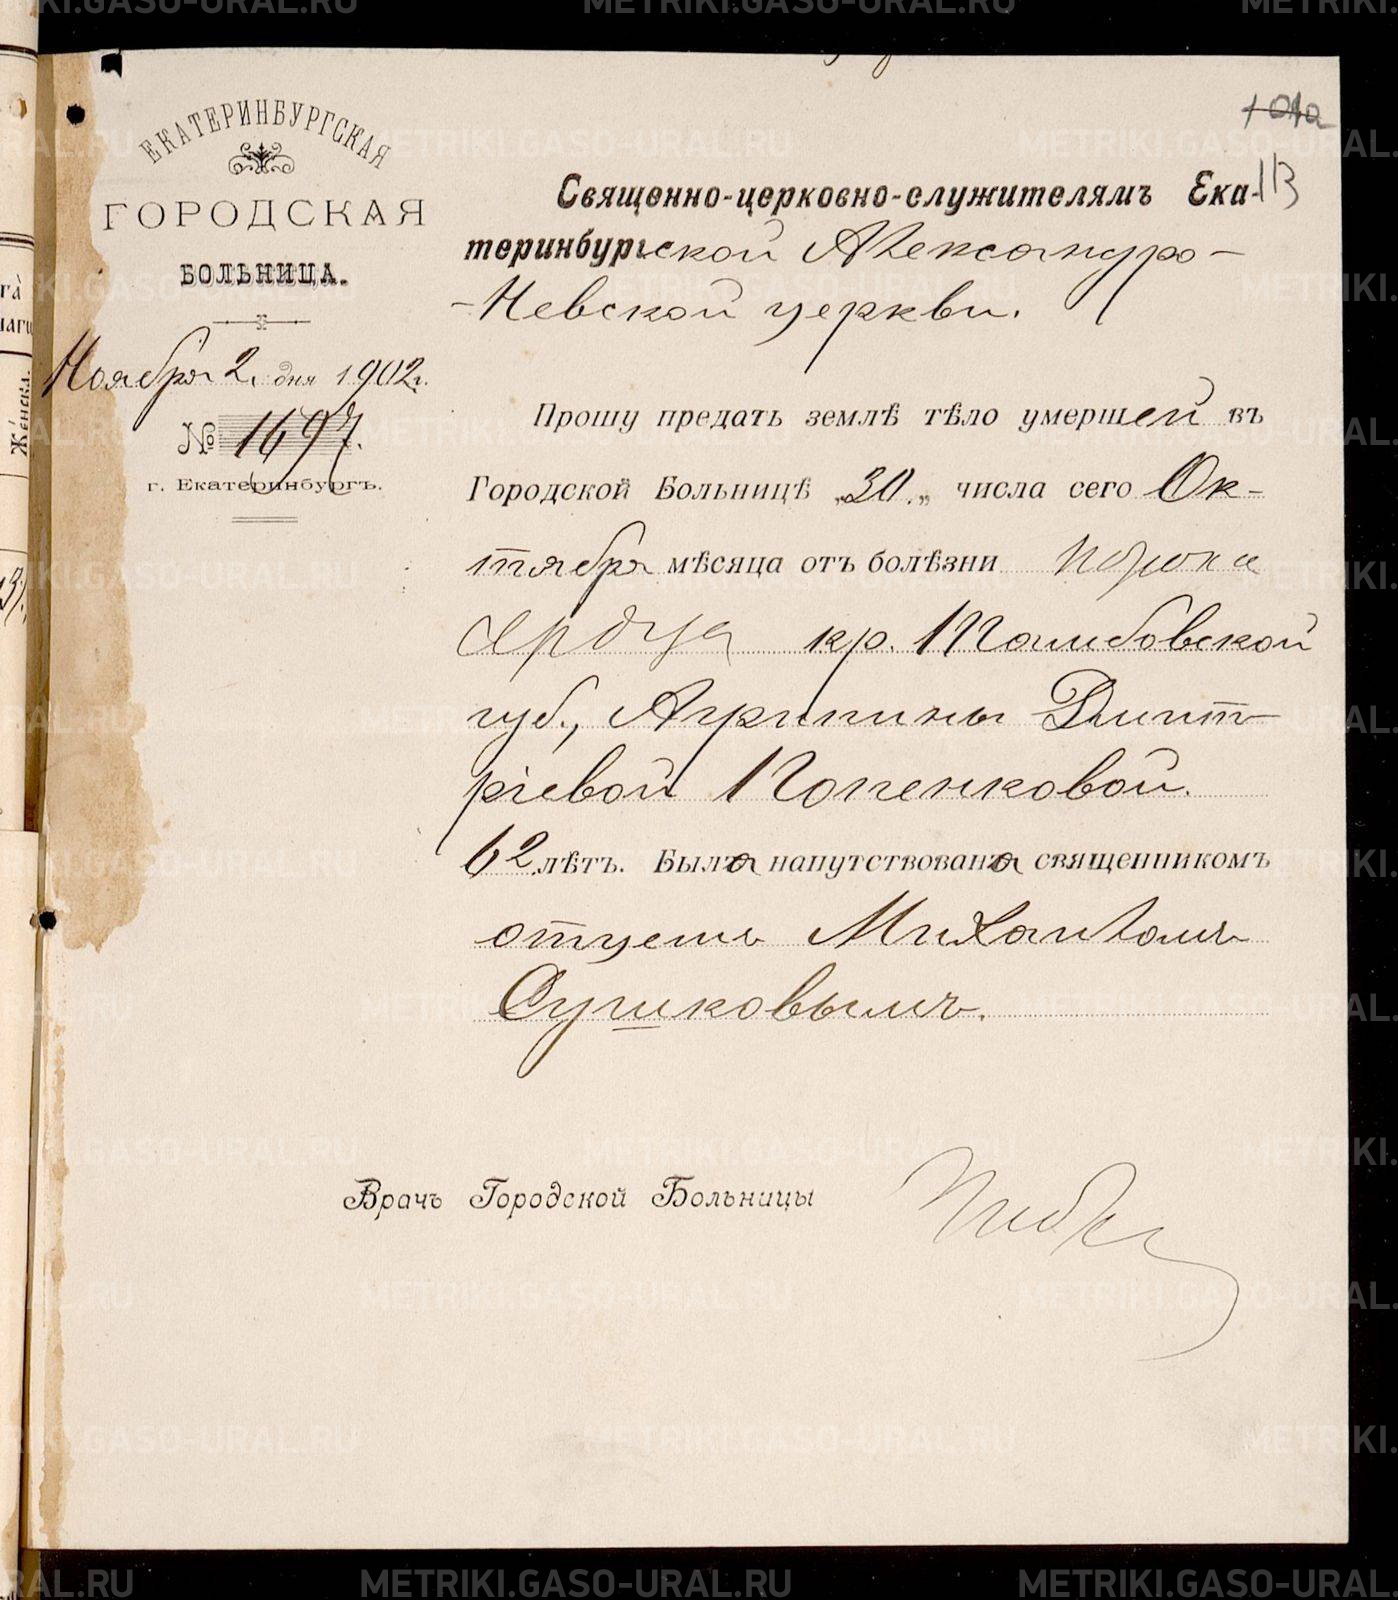 101а
113
ЕКАТЕРИНБУРГСКАЯ
ГОРОДСКАЯ
БОЛЬНИЦА.
Ноября 2 дня 1902 г.
№ 1697.
г. Екатеринбургъ.
Священно-церковно-служителямъ Ека-
теринбургской Александро-
-Невской церкви.
Прошу предать землѣ тѣло умершей въ
Городской Больницѣ „30„ числа сего Ок-
тября мѣсяца отъ болѣзни порока
сердца кр. Тамбовской
губ., Агрипины Дмит-
ріевой Попенковой.
62 лѣтъ. Была напутствована священникомъ
отцемъ Михаиломъ
Сушковымъ.
Врачъ Городской Больницы
METRIKI.GASO-URAL.RU